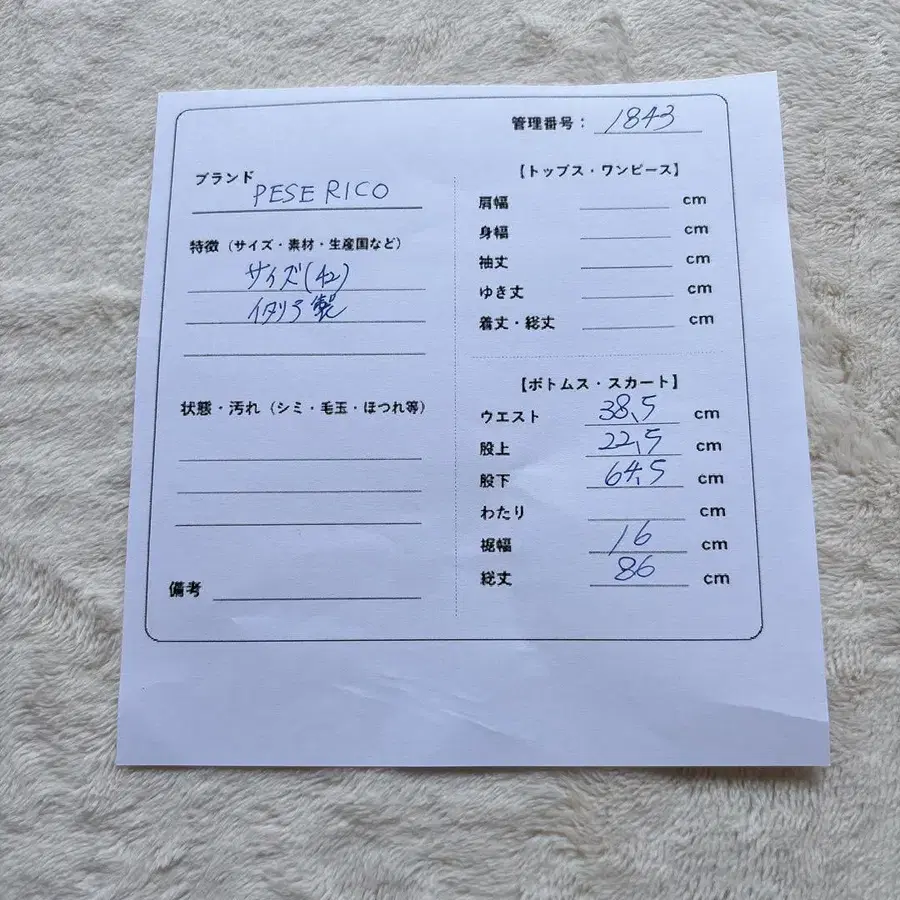 管理番号： 1843
ブランド
PESERICO
特徴（サイズ・素材・生産国など）
サイズ(42)
イタリア製
状態・汚れ（シミ・毛玉・ほつれ等）
備考
【トップス・ワンピース】
肩幅 cm
身幅 cm
袖丈 cm
ゆき丈 cm
着丈・総丈 cm
【ボトムス・スカート】
ウエスト 38,5 cm
股上 22,5 cm
股下 64,5 cm
わたり cm
裾幅 16 cm
総丈 86 cm